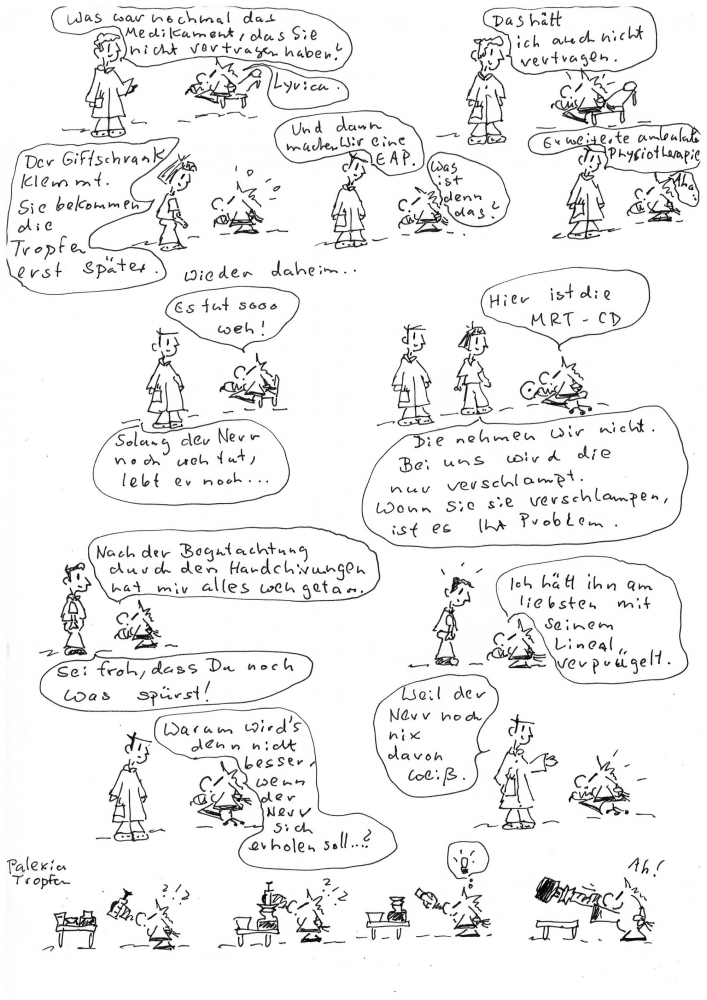 Was war nochmal das
Medikament, das Sie
nicht vertragen haben?
Lyrica.
Das hätt
ich auch nicht
vertragen.
Der Giftschrank
klemmt.
Sie bekommen
die
Tropfen
erst später.
Und dann
machen wir eine
EAP.
Was
ist
denn
das?
Erweiterte ambulante
Physiotherapie
Aha!
wieder daheim..
Es tut sooo
weh!
Solang der Nerv
noch weh tut,
lebt er noch...
Hier ist die
MRT-CD
Die nehmen wir nicht.
Bei uns wird die
nur verschlampt.
Wenn Sie sie verschlampen,
ist es Ihr Problem.
Nach der Begutachtung
durch den Handchirurgen
hat mir alles weh getan.
Sei froh, dass Du noch
was spürst!
Ich hätt ihn am
liebsten mit
seinem
Lineal
verprügelt.
Warum wird's
denn nicht
besser,
wenn
der
Nerv
sich
erholen soll...?
Weil der
Nerv noch
nix
davon
weiß.
Palexia
Tropfen
???
???
Ah!